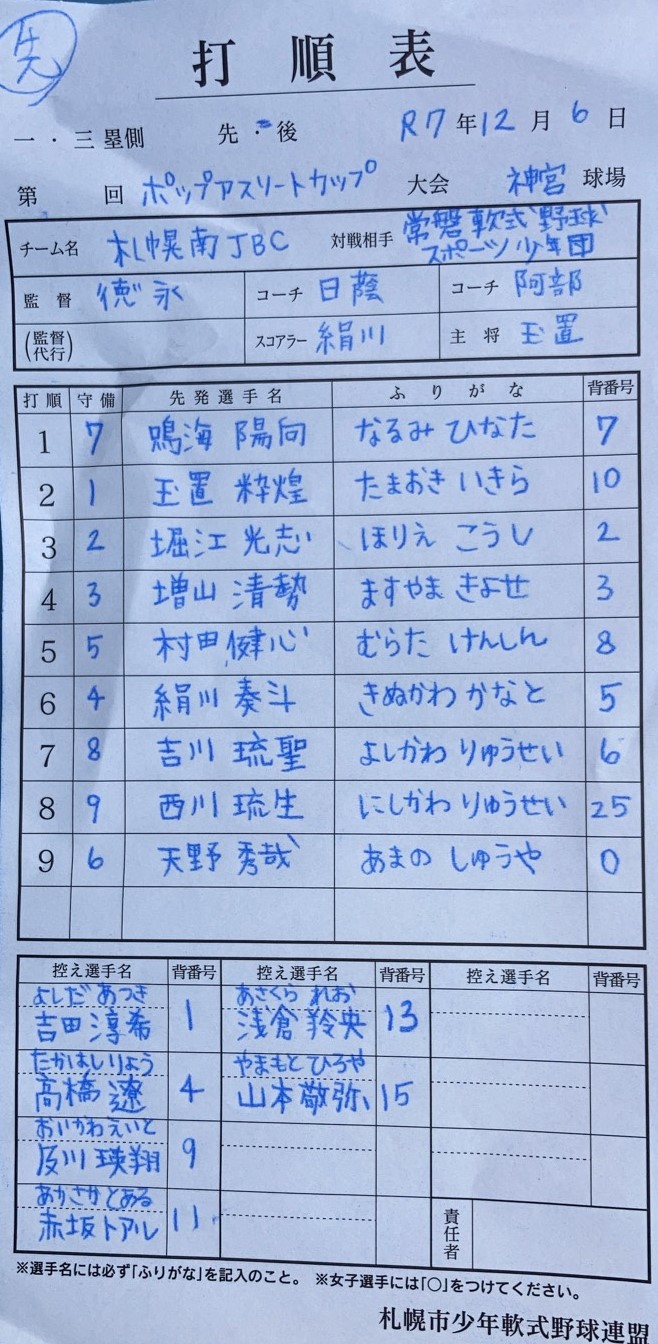 先
打順表
一・三塁側 先・後 R7年12月6日
第 回 ポップアスリートカップ 大会 神宮 球場
チーム名 札幌南JBC 対戦相手 常磐軟式野球
スポーツ少年団
監督 徳永 コーチ 日蔭 コーチ 阿部
(監督代行) スコアラー 絹川 主将 玉置
打順 守備 先発選手名 ふりがな 背番号
1 7 鳴海 陽向 なるみ ひなた 7
2 1 玉置 粋煌 たまおき いきら 10
3 2 堀江 光志 ほりえ こうし 2
4 3 増山 清勢 ますやま きよせ 3
5 5 村田 健心 むらた けんしん 8
6 4 絹川 奏斗 きぬかわ かなと 5
7 8 吉川 琉聖 よしかわ りゅうせい 6
8 9 西川 琉生 にしかわ りゅうせい 25
9 6 天野 秀哉 あまの しゅうや 0
控え選手名 背番号 控え選手名 背番号 控え選手名 背番号
よしだ あつき あさくら れお
吉田 淳希 1 浅倉 羚央 13
たかはしりょう やまもと ひろや
高橋 遼 4 山本 敬弥 15
おいかわえいと
及川 瑛翔 9
あかさかとある
赤坂トアル 11
責任者
※選手名には必ず「ふりがな」を記入のこと。 ※女子選手には「○」をつけてください。
札幌市少年軟式野球連盟